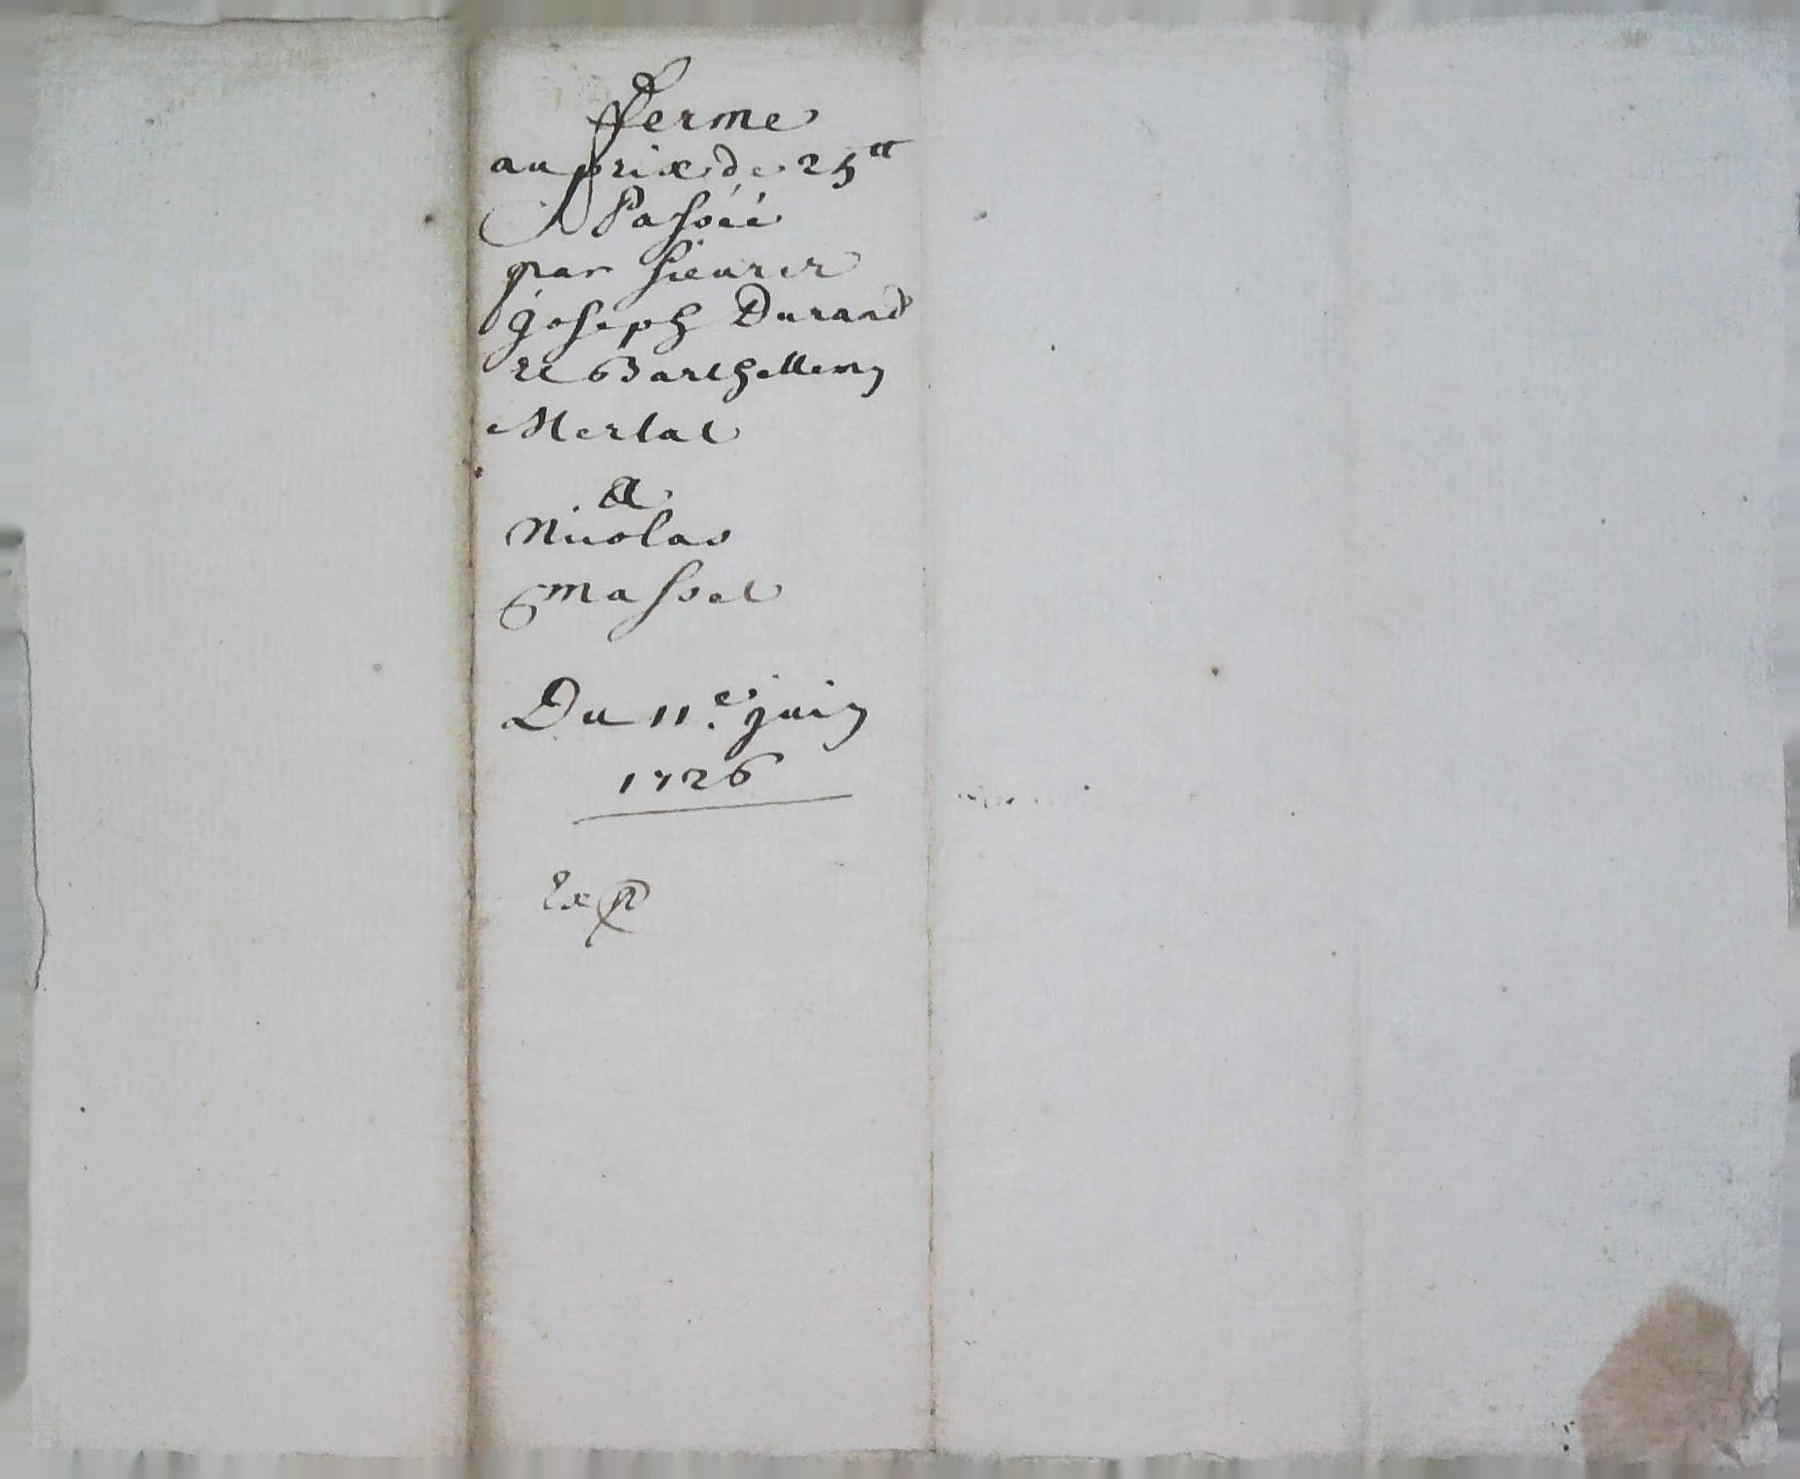 Ferme
au prix de 25tt
Passéé
par sieurer
joseph Durand
et Barthellemy
Merlat
A
Nicolas
Massel
Du 11.e juin
1726
Exp